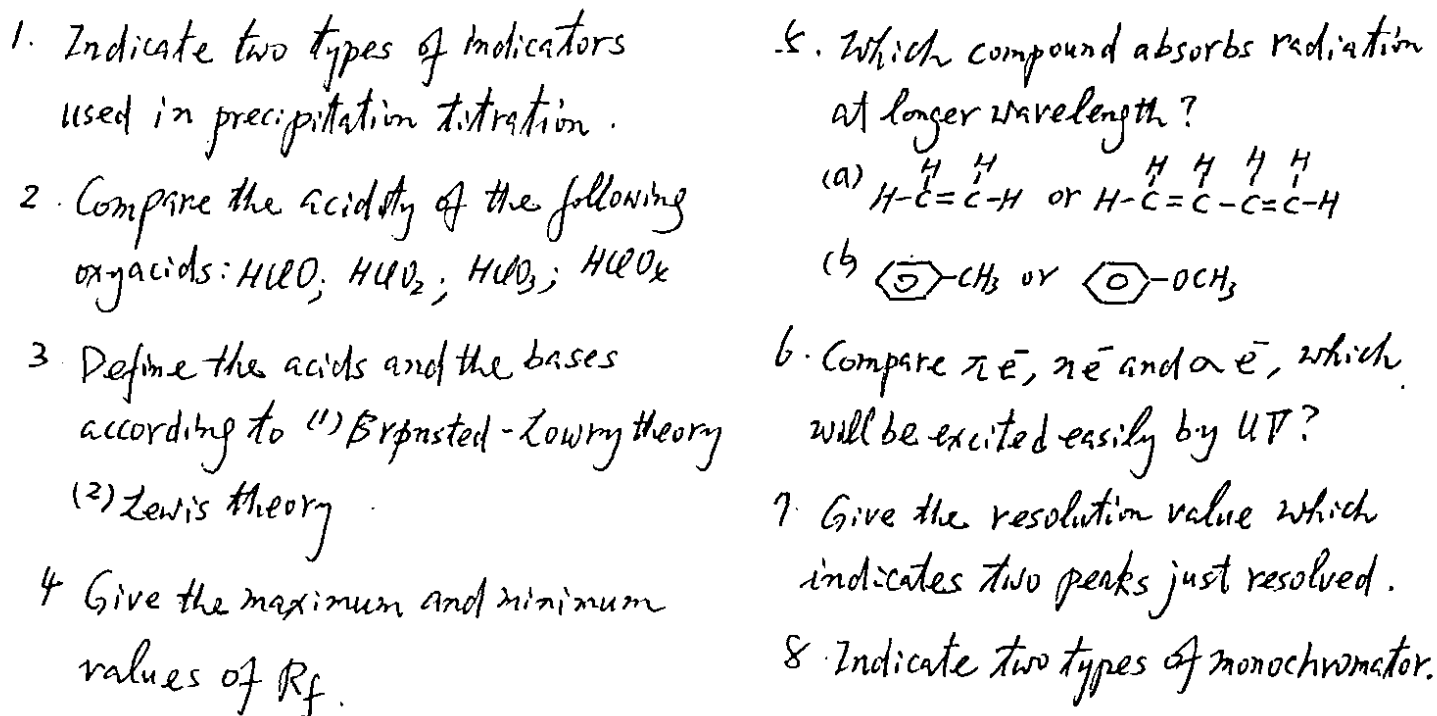 1. Indicate two types of indicators
used in precipitation titration.
2. Compare the acidity of the following
oxyacids: HClO; HClO₂; HClO₃; HClO₄
3. Define the acids and the bases
according to (1) Brønsted-Lowry theory
(2) Lewis theory.
4 Give the maximum and minimum
values of Rf.
5. Which compound absorbs radiation
at longer wavelength?
H H H H H H
(a) H-C=C-H or H-C=C-C=C-H
(b) -CH₃ or -OCH₃
6. Compare π e⁻, n e⁻ and σ e⁻, which
will be excited easily by UV?
7. Give the resolution value which
indicates two peaks just resolved.
8. Indicate two types of monochromator.